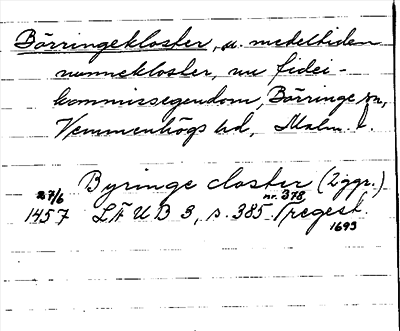 Börringekloster, u. medeltiden
nunnekloster, nu fidei-
kommissegendom, Börringe sn,
Vemmenhögs hd, Malm. l.
Byringe closter (2 ggr.)
27/6
1457 LÅUB 3, s. 385. nr. 378, regest.
1695